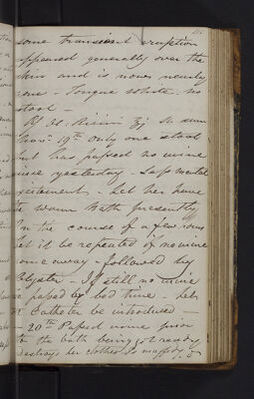 some transient eruption
appeared generally over the
skin and is now nearly
gone - Tongue white. no
stool -
Ol. Ricini
19th only one stool
but has passed no urine
since yesterday - Less mental
excitement. Let her have
the warm Bath presently
In the course of a few hours
let it be repeated if no urine
come away - followed by
Clyster - If still no urine
be passed by bed time - let
Catheter be introduced -
- 20th Passed urine prior
to the bath being got ready
destroys her clothes so